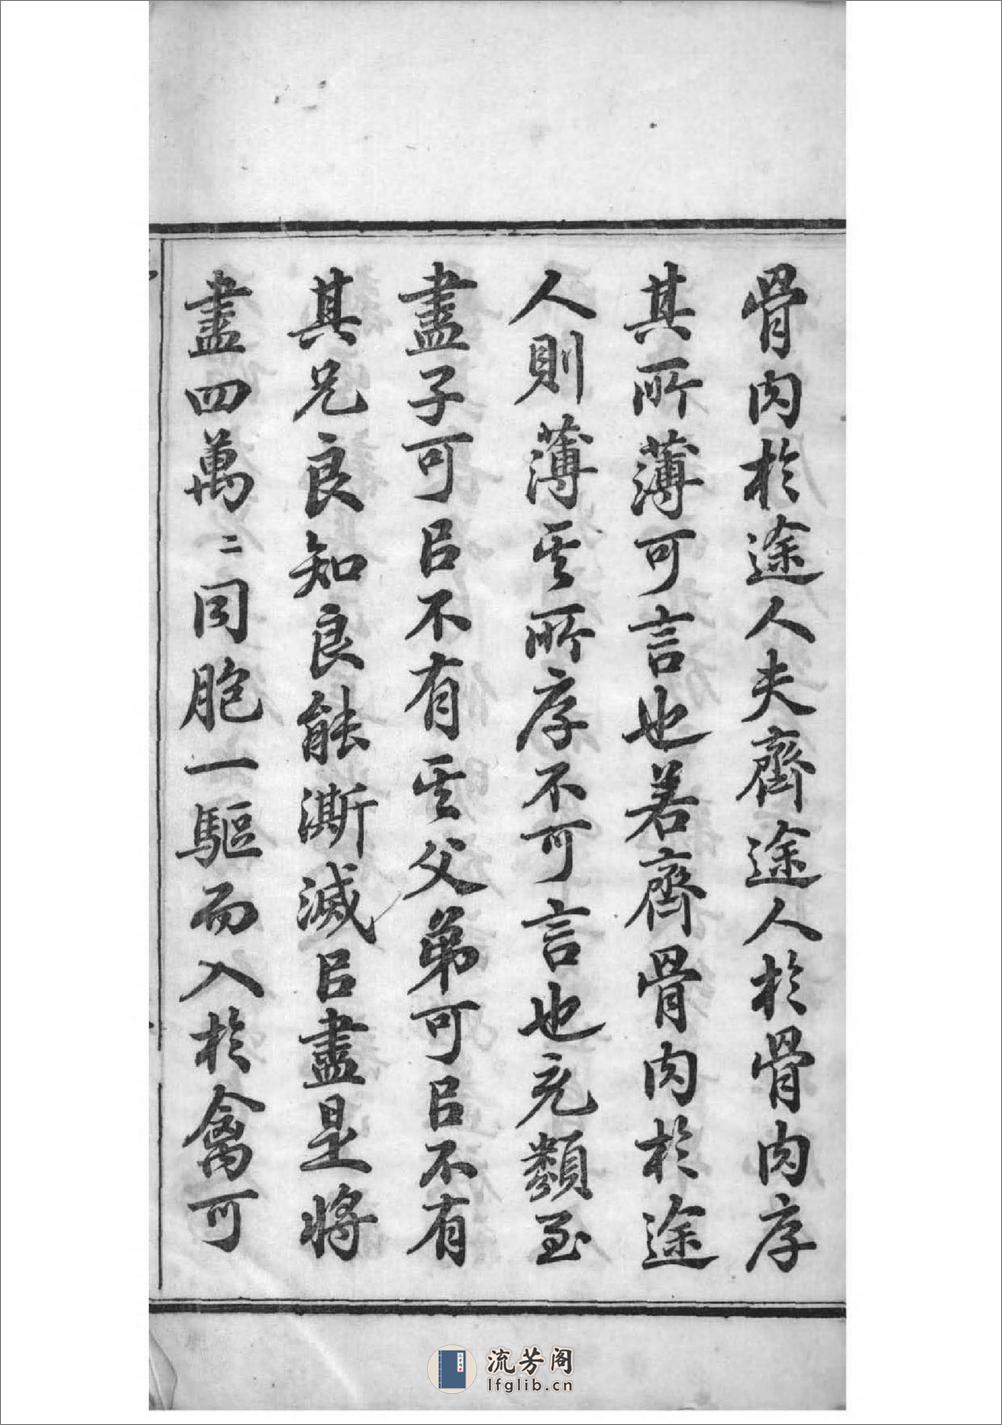 骨肉於途人夫齊途人於骨肉序
其所薄可言也若齊骨肉於途
人則薄其所序不可言也充類至
盡子可㠯不有其父弟可㠯不有
其兄良知良能澌滅㠯盡是將
盡四萬二同胞一驅而入於禽可
流芳阁
lfglib.cn